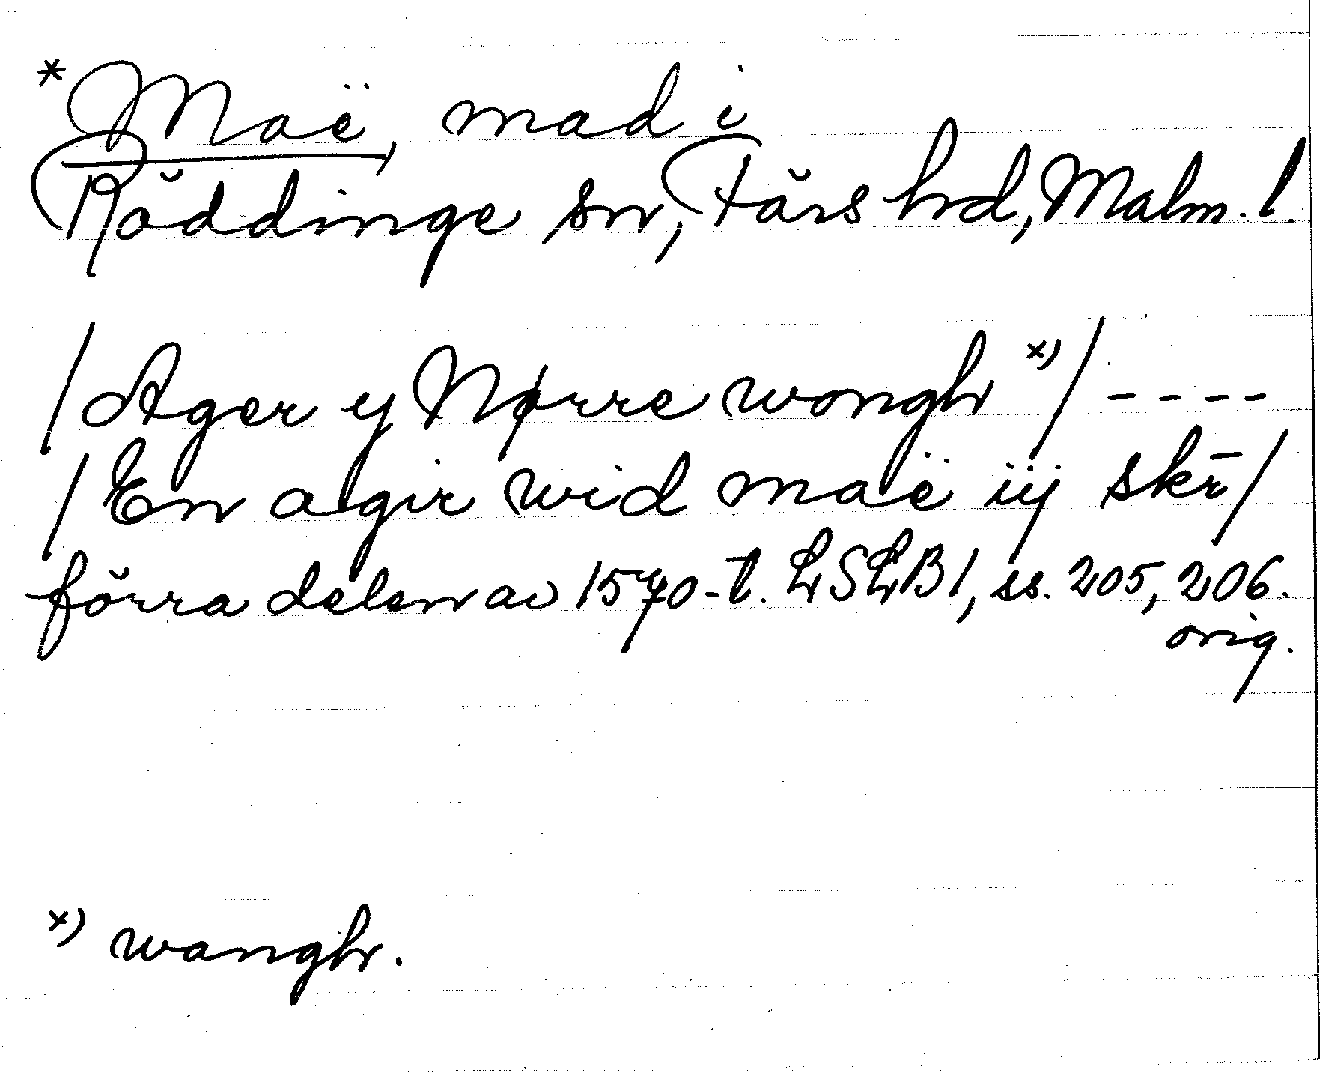 *Maë, mad i
Röddinge sn, Färs hd, Malm. l.
/Ager y Nørre wongh x)/ - - - -
/En agir wid maë iij skr̄/
förra delen av 1570-t. LSLB1, ss. 205, 206.
orig.
x) wangh.